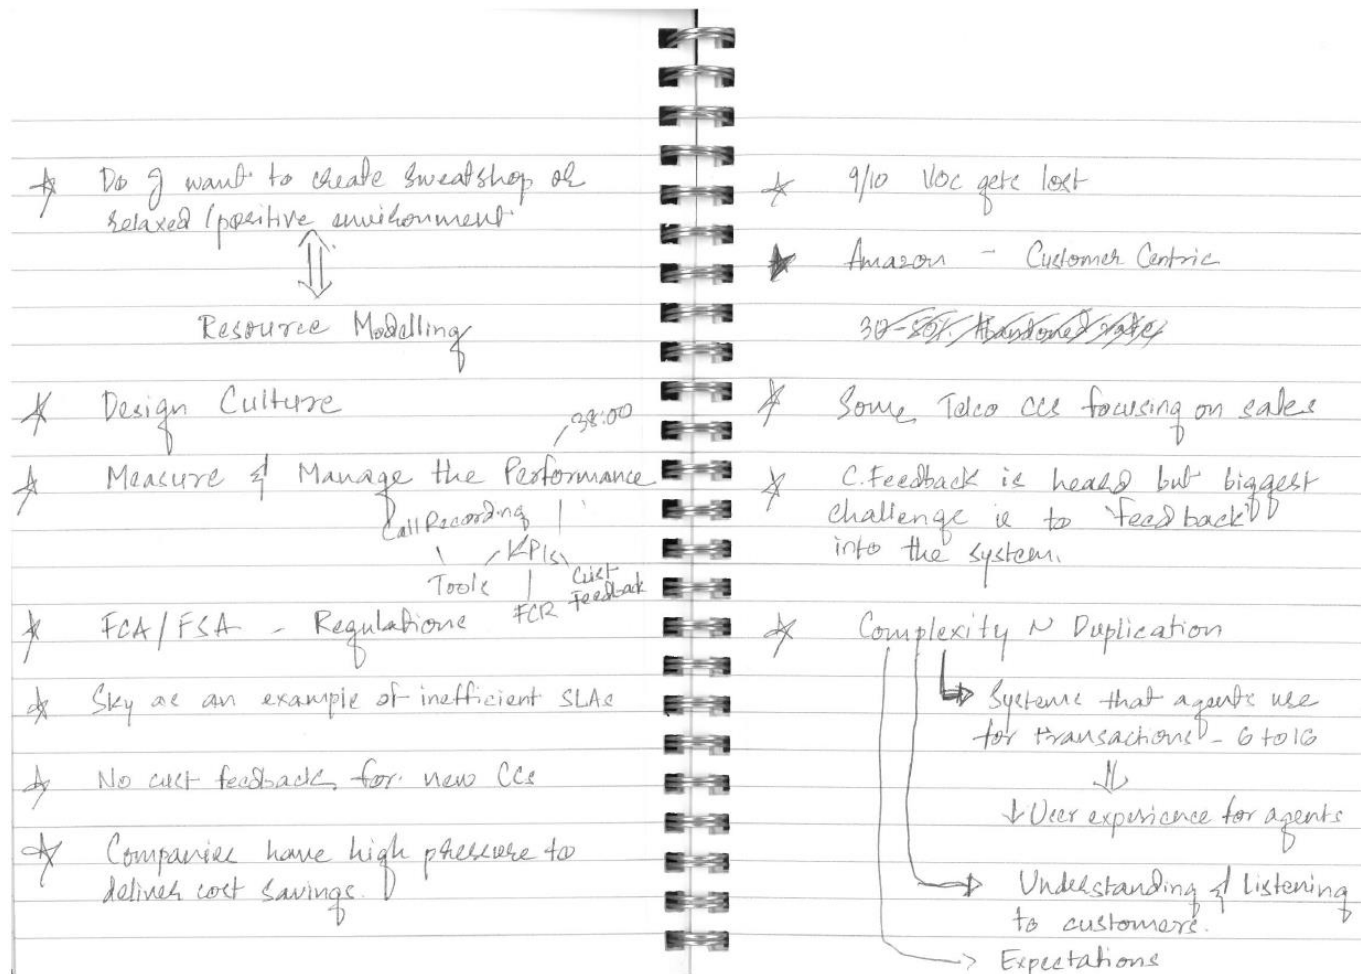 Do I want to create sweatshop or
relaxed / positive environment
Resource Modelling
Design Culture
38:00
Measure & Manage the Performance
Call Recording
KPIs
Tools
FCR
Cust
Feedback
FCA/FSA - Regulations
Sky as an example of inefficient SLAs
No cust feedback for new CCs
Companies have high pressure to
deliver cost savings.
9/10 VOC gets lost
Amazon - Customer Centric
Abandoned
Some Telco CCs focusing on sales
C.Feedback is heard but biggest
challenge is to 'feedback'
into the system.
Complexity N Duplication
Systems that agents use
for transactions - 6 to 16
↓ User experience for agents
Understanding & Listening
to customers.
Expectations